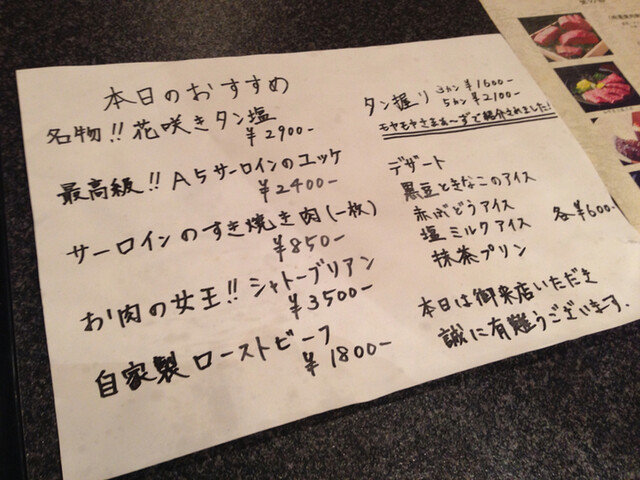 本日のおすすめ
名物!! 花咲きタン塩
¥2900-
最高級!! A5サーロインのユッケ
¥2400-
サーロインのすき焼き肉(一枚)
¥850-
お肉の女王!! シャトーブリアン
¥3500-
自家製ローストビーフ
¥1800-
タン握り 3カン¥1600-
5カン¥2100-
モヤモヤさまぁ〜ずで紹介されました!
デザート
黒豆ときなこのアイス
赤ぶどうアイス
塩ミルクアイス 各¥600-
抹茶プリン
本日は御来店いただき
誠に有難うございます.